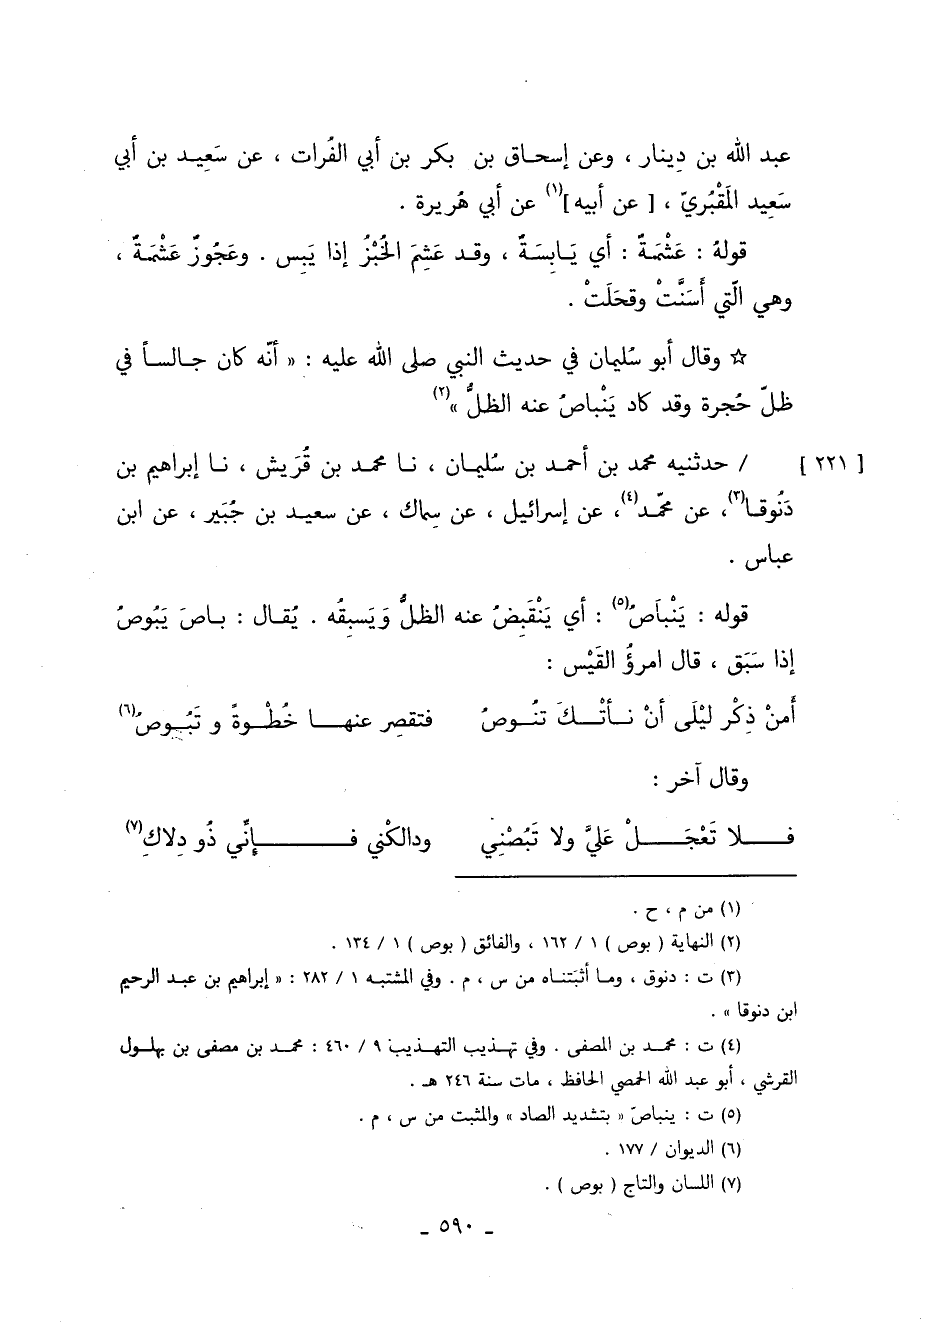 عبد الله بن دِينار ، وعن إسحاق بن بكر بن أبي الفُرات ، عن سَعِيد بن أبي
سَعِيد المَقْبُريّ ، [ عن أبيه ](١) عن أبي هُريرة .
قولهُ : عَشْمَةٌ : أي يَابسَةٌ ، وقد عَشِمَ الخُبْزُ إذا يَبِس . وعَجُوزٌ عَشْمَةٌ ،
وهي الّتي أَسَنَّتْ وقحَلَتْ .
☆ وقال أبو سُليمان في حديث النبي صلى الله عليه : « أنّه كان جالساً في
ظلّ حُجرة وقد كاد يَنْباصُ عنه الظلُّ »(٢)
[ ٢٢١ ] / حدثنيه محمد بن أحمد بن سُليمان ، نا محمد بن قُرَيش ، نا إبراهيم بن
دَنُوقا(٣)، عن محمّد(٤)، عن إسرائيل ، عن سِماك ، عن سعيد بن جُبَير ، عن ابن
عباس .
قوله : يَنْبَاصُ(٥) : أي يَنْقَبِضُ عنه الظلُّ وَيَسبِقُه . يُقال : باصَ يَبُوصُ
إذا سَبَق ، قال امرؤُ القَيْس :
أَمنْ ذِكْر ليْلَى أنْ نأتْكَ تنُوصُ فتقصر عنها خُطْوةً و تَبُوصُ(٦)
وقال آخر :
فلا تَعْجَلْ عَليَّ ولا تَبُصْني ودالكْني فإنِّي ذُو دِلاكِ(٧)
(١) من م ، ح .
(٢) النهاية ( بوص ) ١ / ١٦٢ ، والفائق ( بوص ) ١ / ١٣٤ .
(٣) ت : دنوق ، وما أثبَتناه من س ، م . وفي المشتبه ١ / ٢٨٢ : « إبراهيم بن عبد الرحيم
ابن دنوقا » .
(٤) ت : محمد بن المصفى . وفي تهذيب التهذيب ٩ / ٤٦٠ : محمد بن مصفى بن بهلول
القرشي ، أبو عبد الله الحمصي الحافظ ، مات سنة ٢٤٦ هـ .
(٥) ت : ينباصّ « بتشديد الصاد » والمثبت من س ، م .
(٦) الديوان / ١٧٧ .
(٧) اللسان والتاج ( بوص ) .
ـ ٥٩٠ ـ